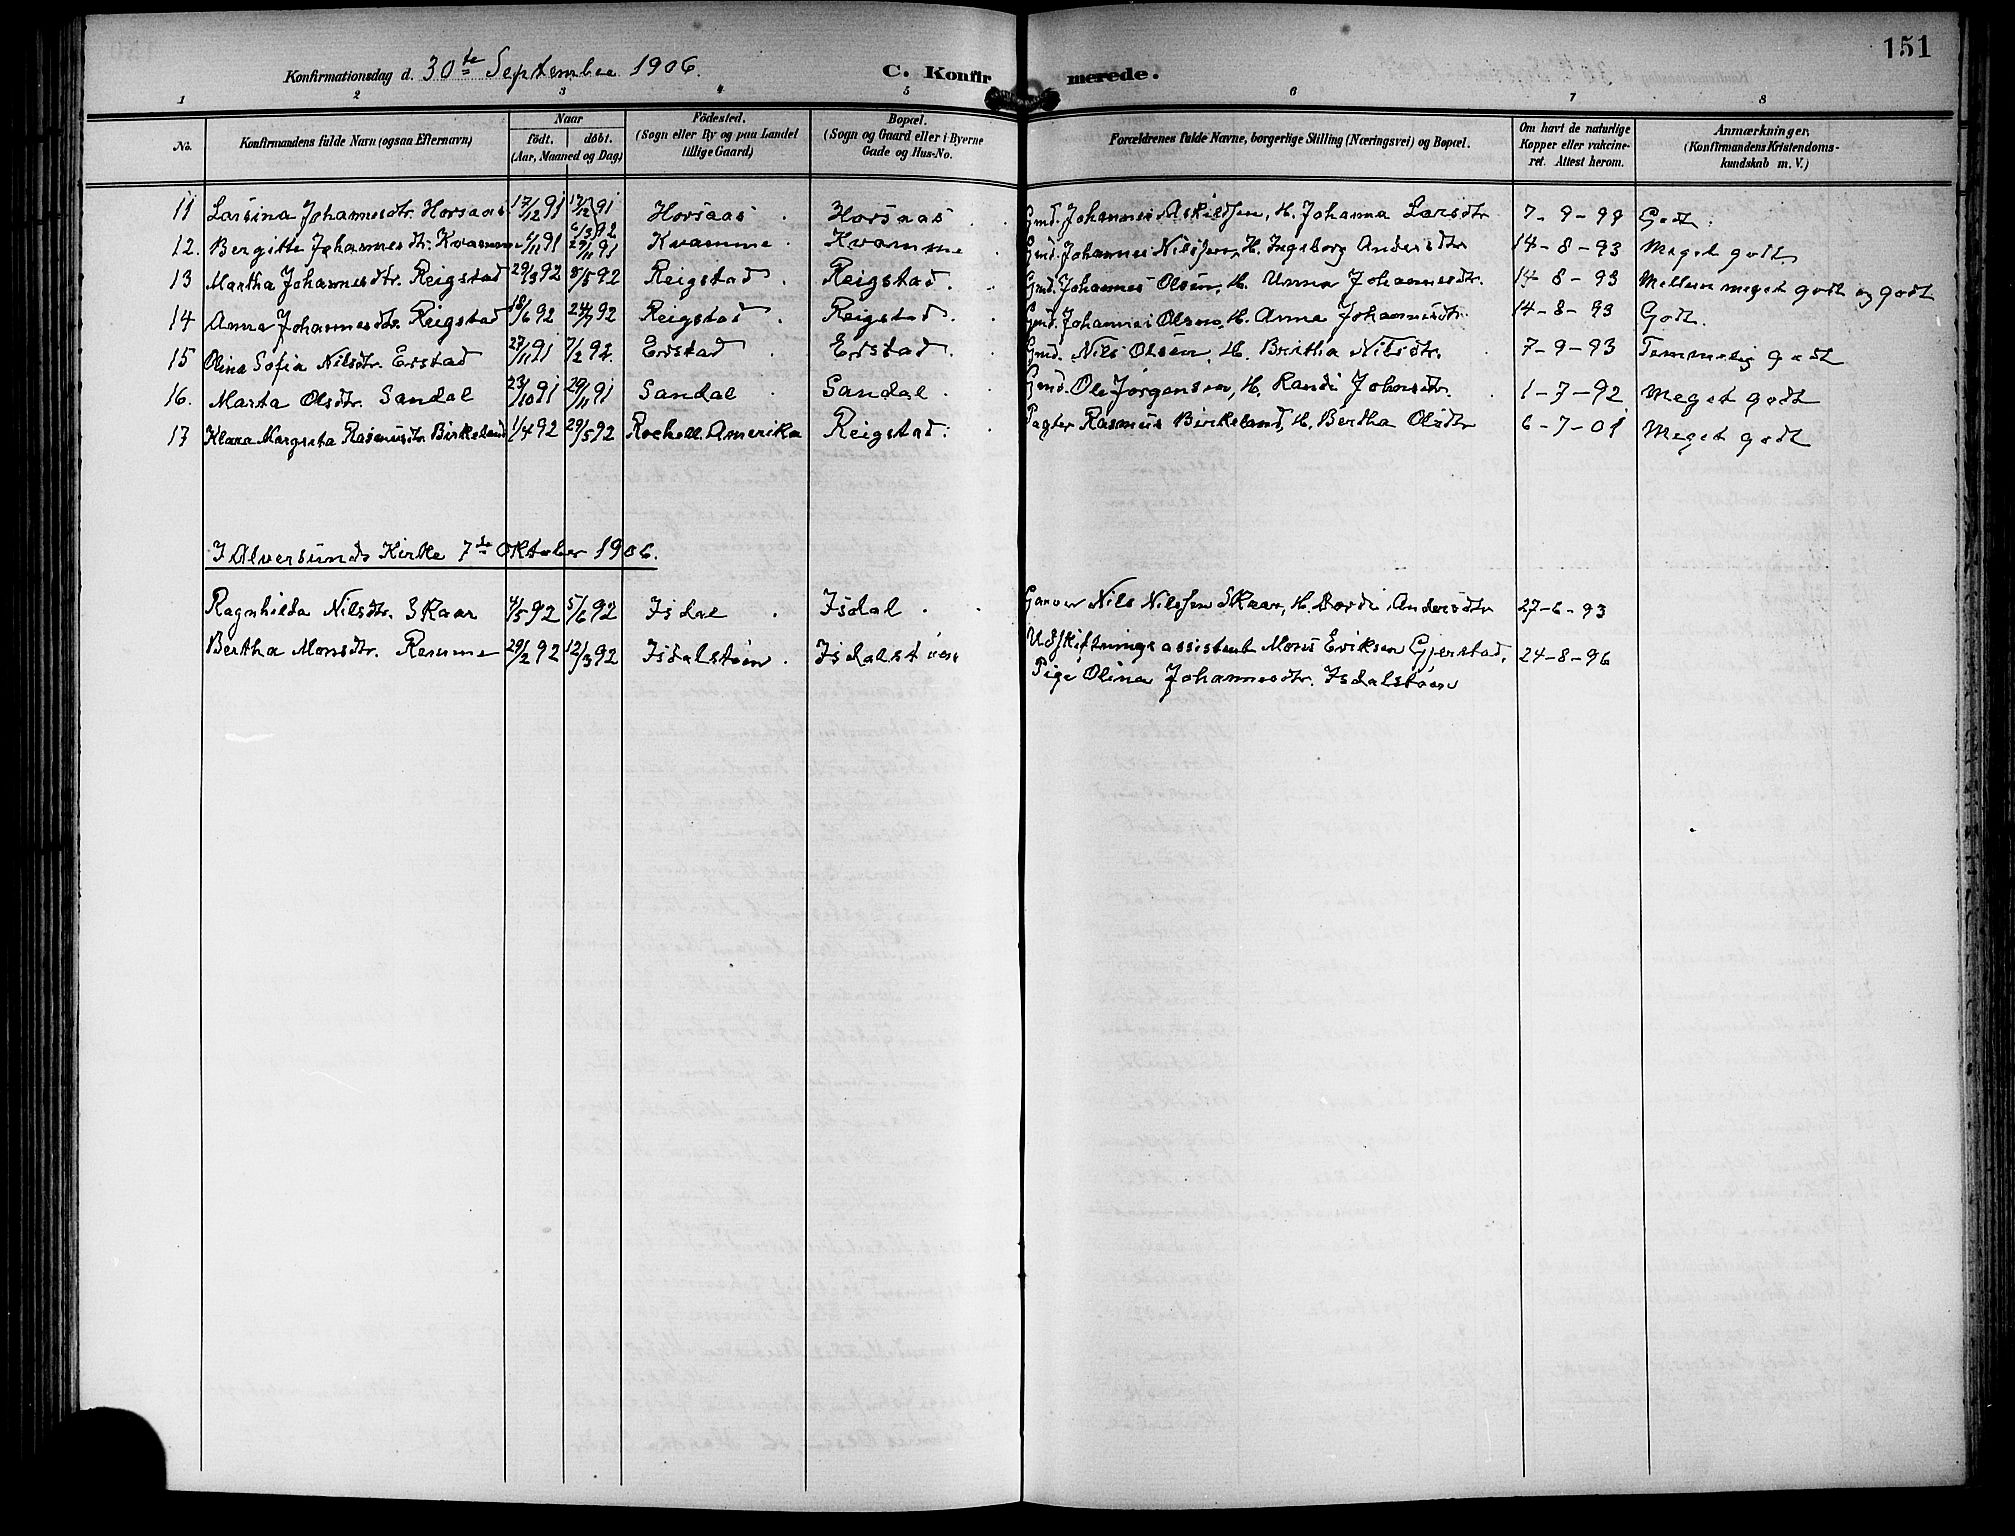 151
Konfirmationsdag d. 30te September 1906. C. Konfirmerede.
1 2 3 4 5 6 7 8
No. Konfirmandens fulde Navn (ogsaa Efternavn) Naar født. døbt. (Aar, Maaned og Dag) Fødested. (Sogn eller By og paa Landet tillige Gaard) Bopæl. (Sogn og Gaard eller i Byerne Gade og Hus-No. Forældrenes fulde Navne, borgerlige Stilling (Næringsvei) og Bopæl. Om havt de naturlige Kopper eller vakcineret. Attest herom. Anmærkninger, (Konfirmandens Kristendomskundskab m. V.)
11 Larsina Johannesdtr. Horsaas 17/12 91 Horsaas Horsaas Gmd. Johannes Askildsen, H. Johanna Larsdtr. 7-9-99 Godt.
12. Bergitte Johannesdtr. Kvamme 29/11 91 Kvamme Kvamme Gmd. Johannes Nilssen, H. Ingeborg Andersdtr 14-8-93 Meget godt
13 Martha Johannesdtr. Reigstad 29/3 92 8/5 92 Reigstad Reigstad. Gmd. Johannes Olsen, H. Unna Johannesdtr. 14-8-93 Mellem meget godt og godt
14 Anna Johannesdtr. Reigstad 18/6 92 24/7 92 Reigstad Reigstad. Gmd. Johannes Olsen, H. Anna Johannesdtr. 14-8-93 Godt.
15 Olina Sofia Nilsdtr. Erstad 27/11 91 7/2 92. Erstad Erstad. Gmd. Nils Olsen, H. Britha Nilsdtr. 7-9-93 Temmelig godt
16. Marta Olsdtr. Sandal 23/10 91 29/11 91 Sandal Sandal. Gmd. Ole Jørgensen, H. Randi Johnsdtr. 1-7-92 Meget godt
17 Klara Margreta Rasmusdtr. Birkeland 1/4 92 29/5 92 Rochell. Amerika Reigstad. Pagter Rasmus Birkeland, H. Bertha Olsdtr 6-7-01 Meget godt
I Alversunds Kirke 7de Oktober 1906.
Ragnhilda Nilsdtr. Skaar 4/5 92 5/6 92 Isdal Isdal. Garver Nils Nilssen Skaar, H. Andersdtr 27-6-93
Bertha Monsdtr. 29/2 92 12/3 92 Isdalstøen Isdalstøen Udskiftningsassistent Mons Eriksen Gjerstad, 24-8-96
Pige Olina Johannesdtr. Isdalstøen